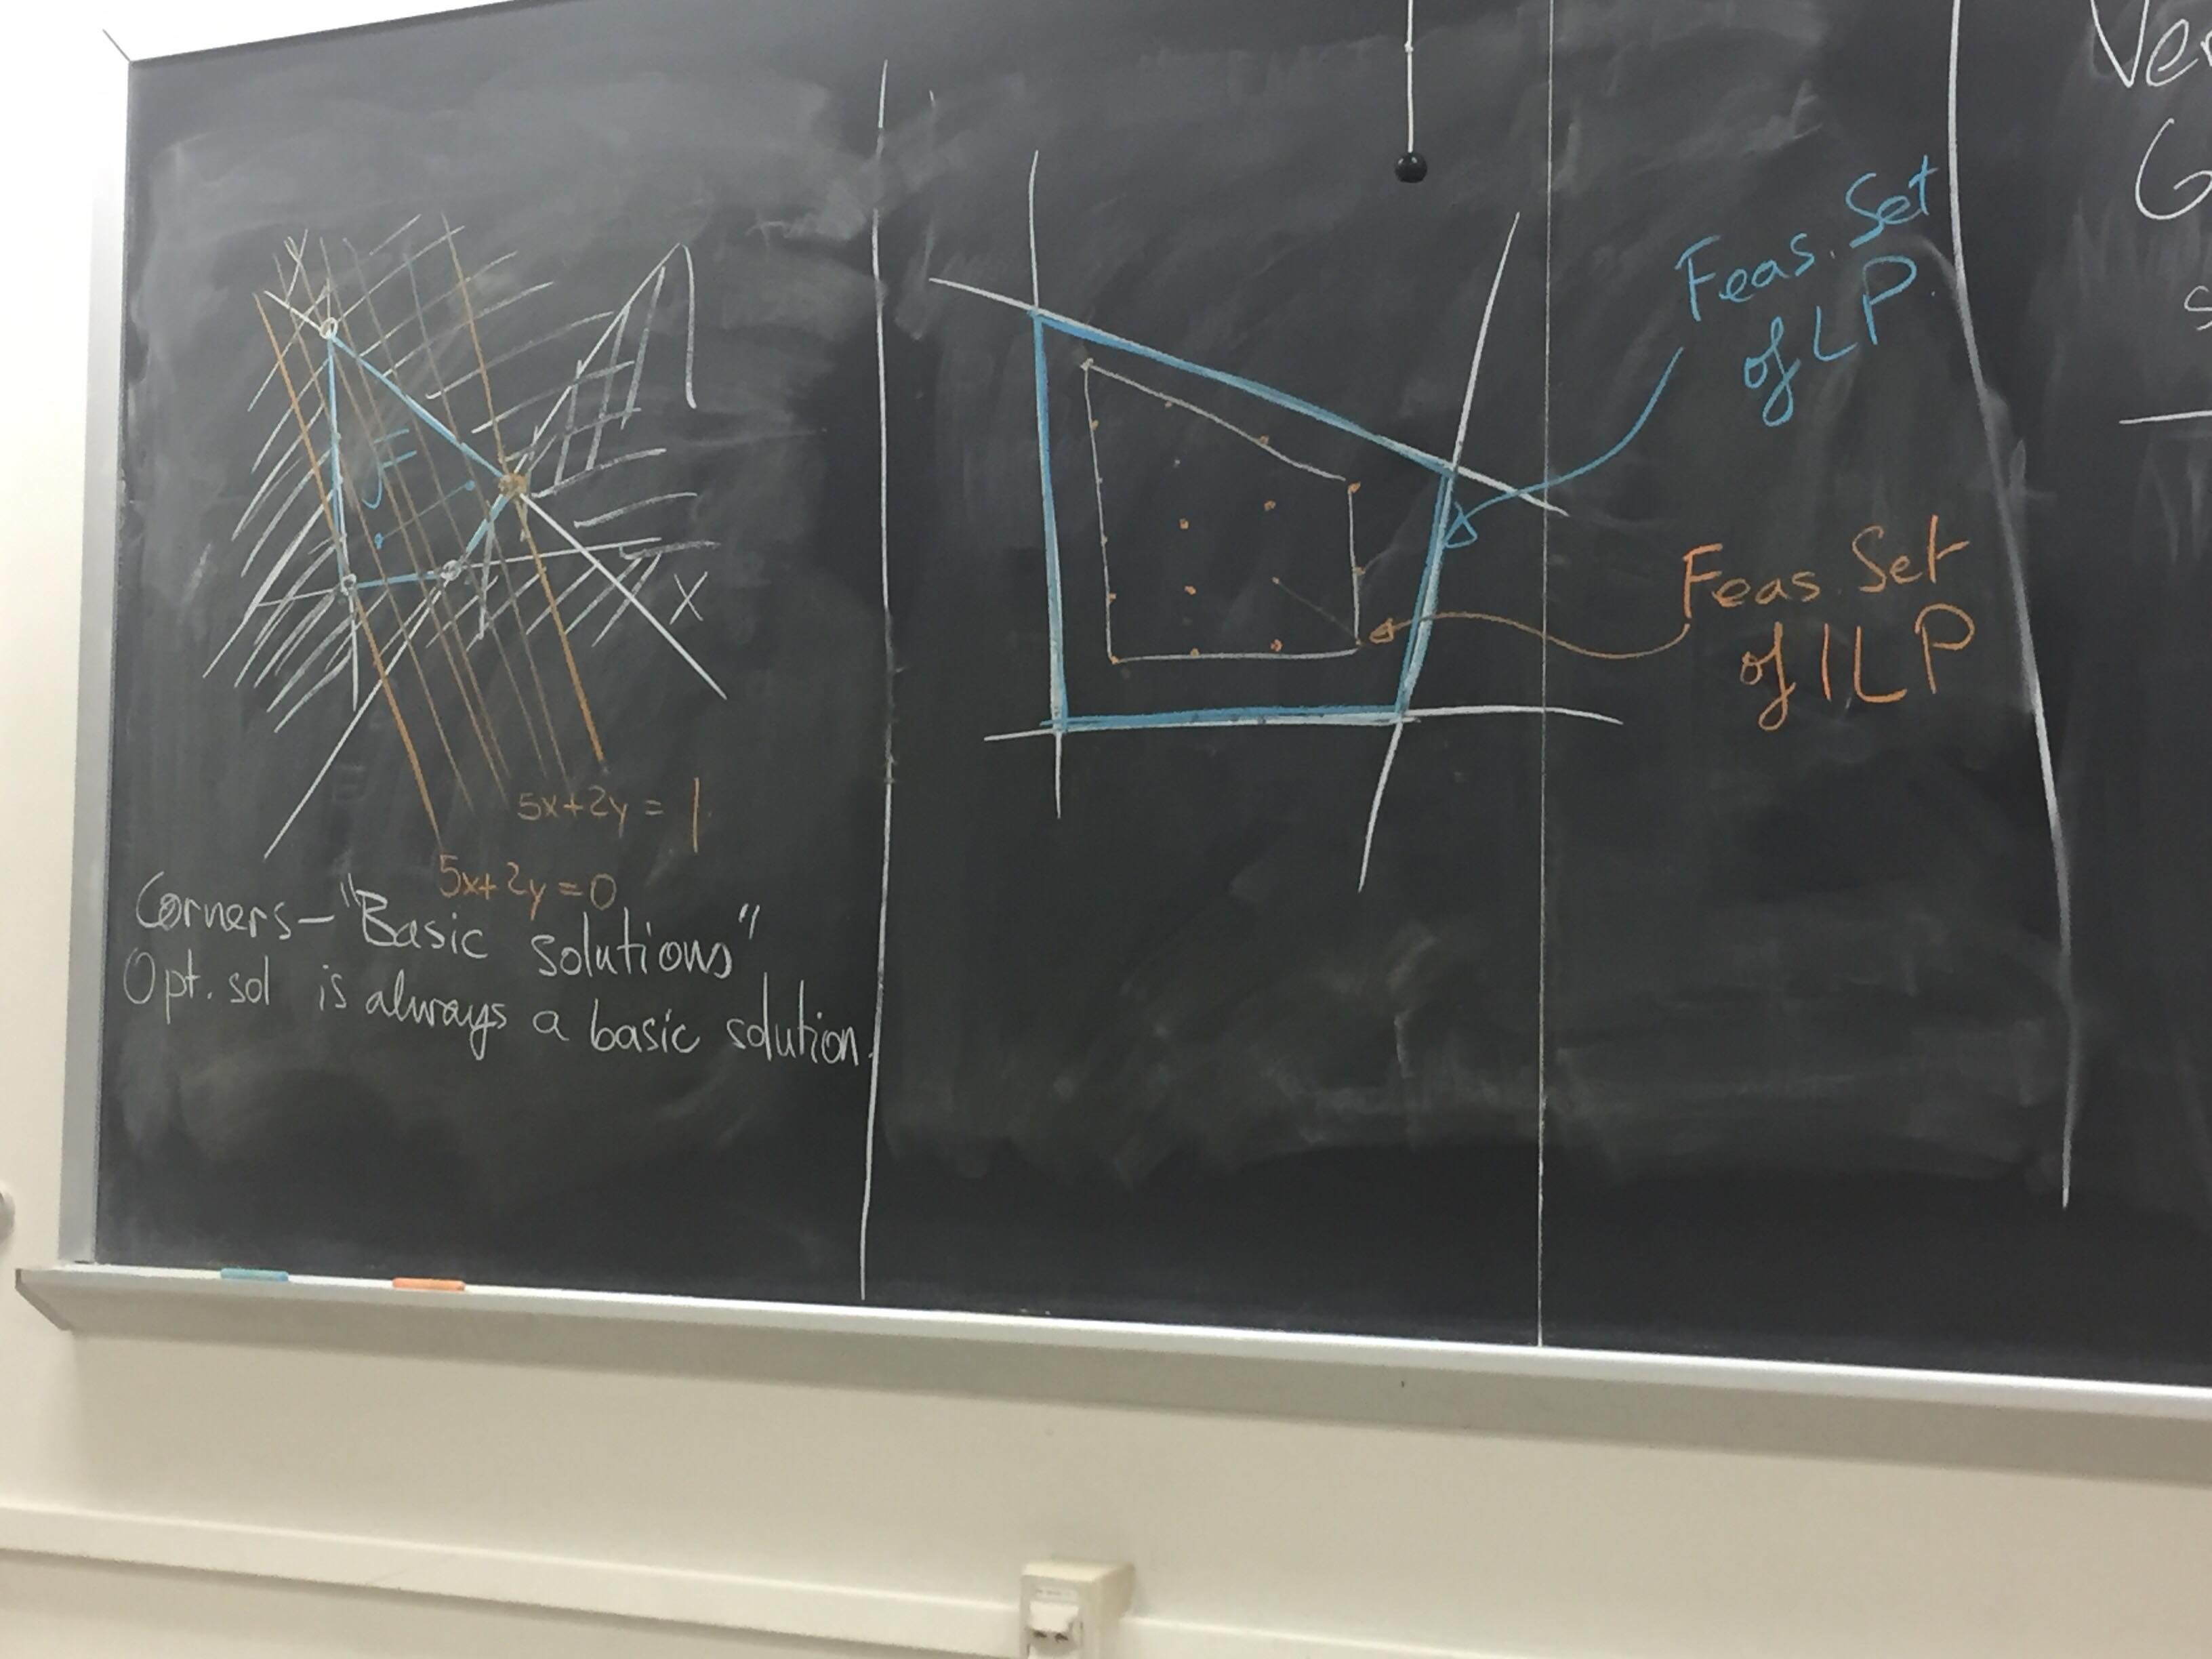 F
X
5x+2y = 1
5x+2y = 0
Corners – "Basic solutions"
Opt. sol is always a basic solution.
Feas. Set
of LP
Feas. Set
of ILP
Ver
G
s